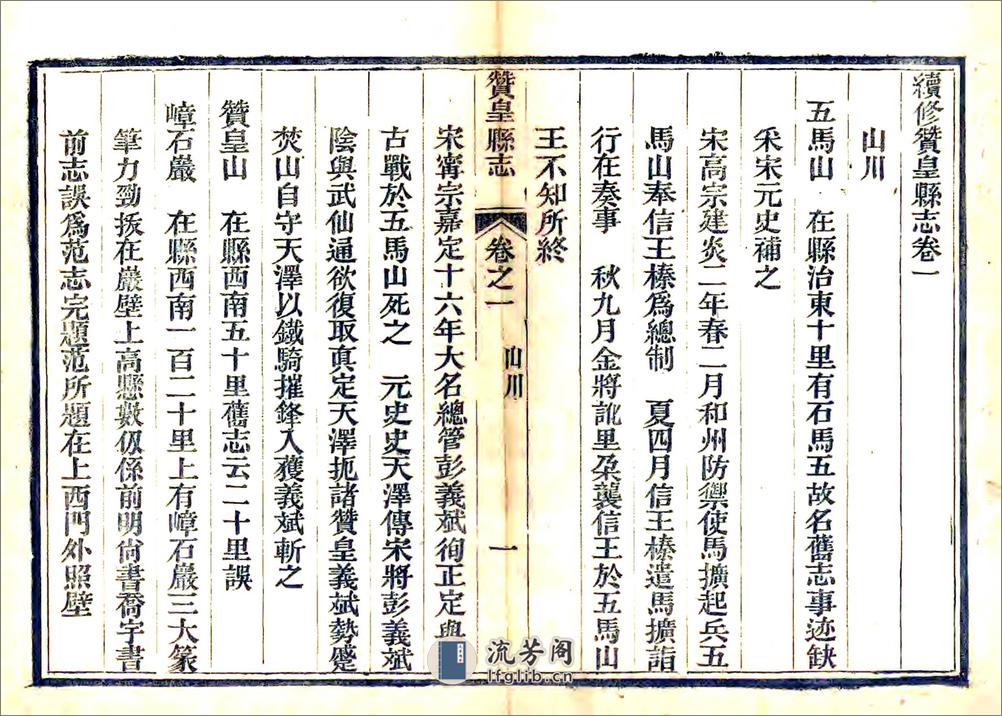 續修贊皇縣志卷一
山川
五馬山　在縣治東十里有石馬五故名舊志事迹缺
采宋元史補之
宋高宗建炎二年春二月和州防禦使馬擴起兵五
馬山奉信王榛爲總制　夏四月信王榛遣馬擴詣
行在奏事　秋九月金將訛里朶襲信王於五馬山
王不知所終
贊皇縣志　卷之一　山川　一
宋寗宗嘉定十六年大名總管彭義斌徇正定與
古戰於五馬山死之　元史史天澤傳宋將彭義斌
陰與武仙通欲復取真定天澤扼諸贊皇義斌勢蹙
焚山自守天澤以鐵騎摧鋒入獲義斌斬之
贊皇山　在縣西南五十里舊志云二十里誤
嶂石巖　在縣西南一百二十里上有嶂石巖三大篆
筆力勁拔在巖壁上高懸數仭係前明尙書喬宇書
前志誤爲范志完題范所題在上西門外照壁
流芳阁
lfglib.cn